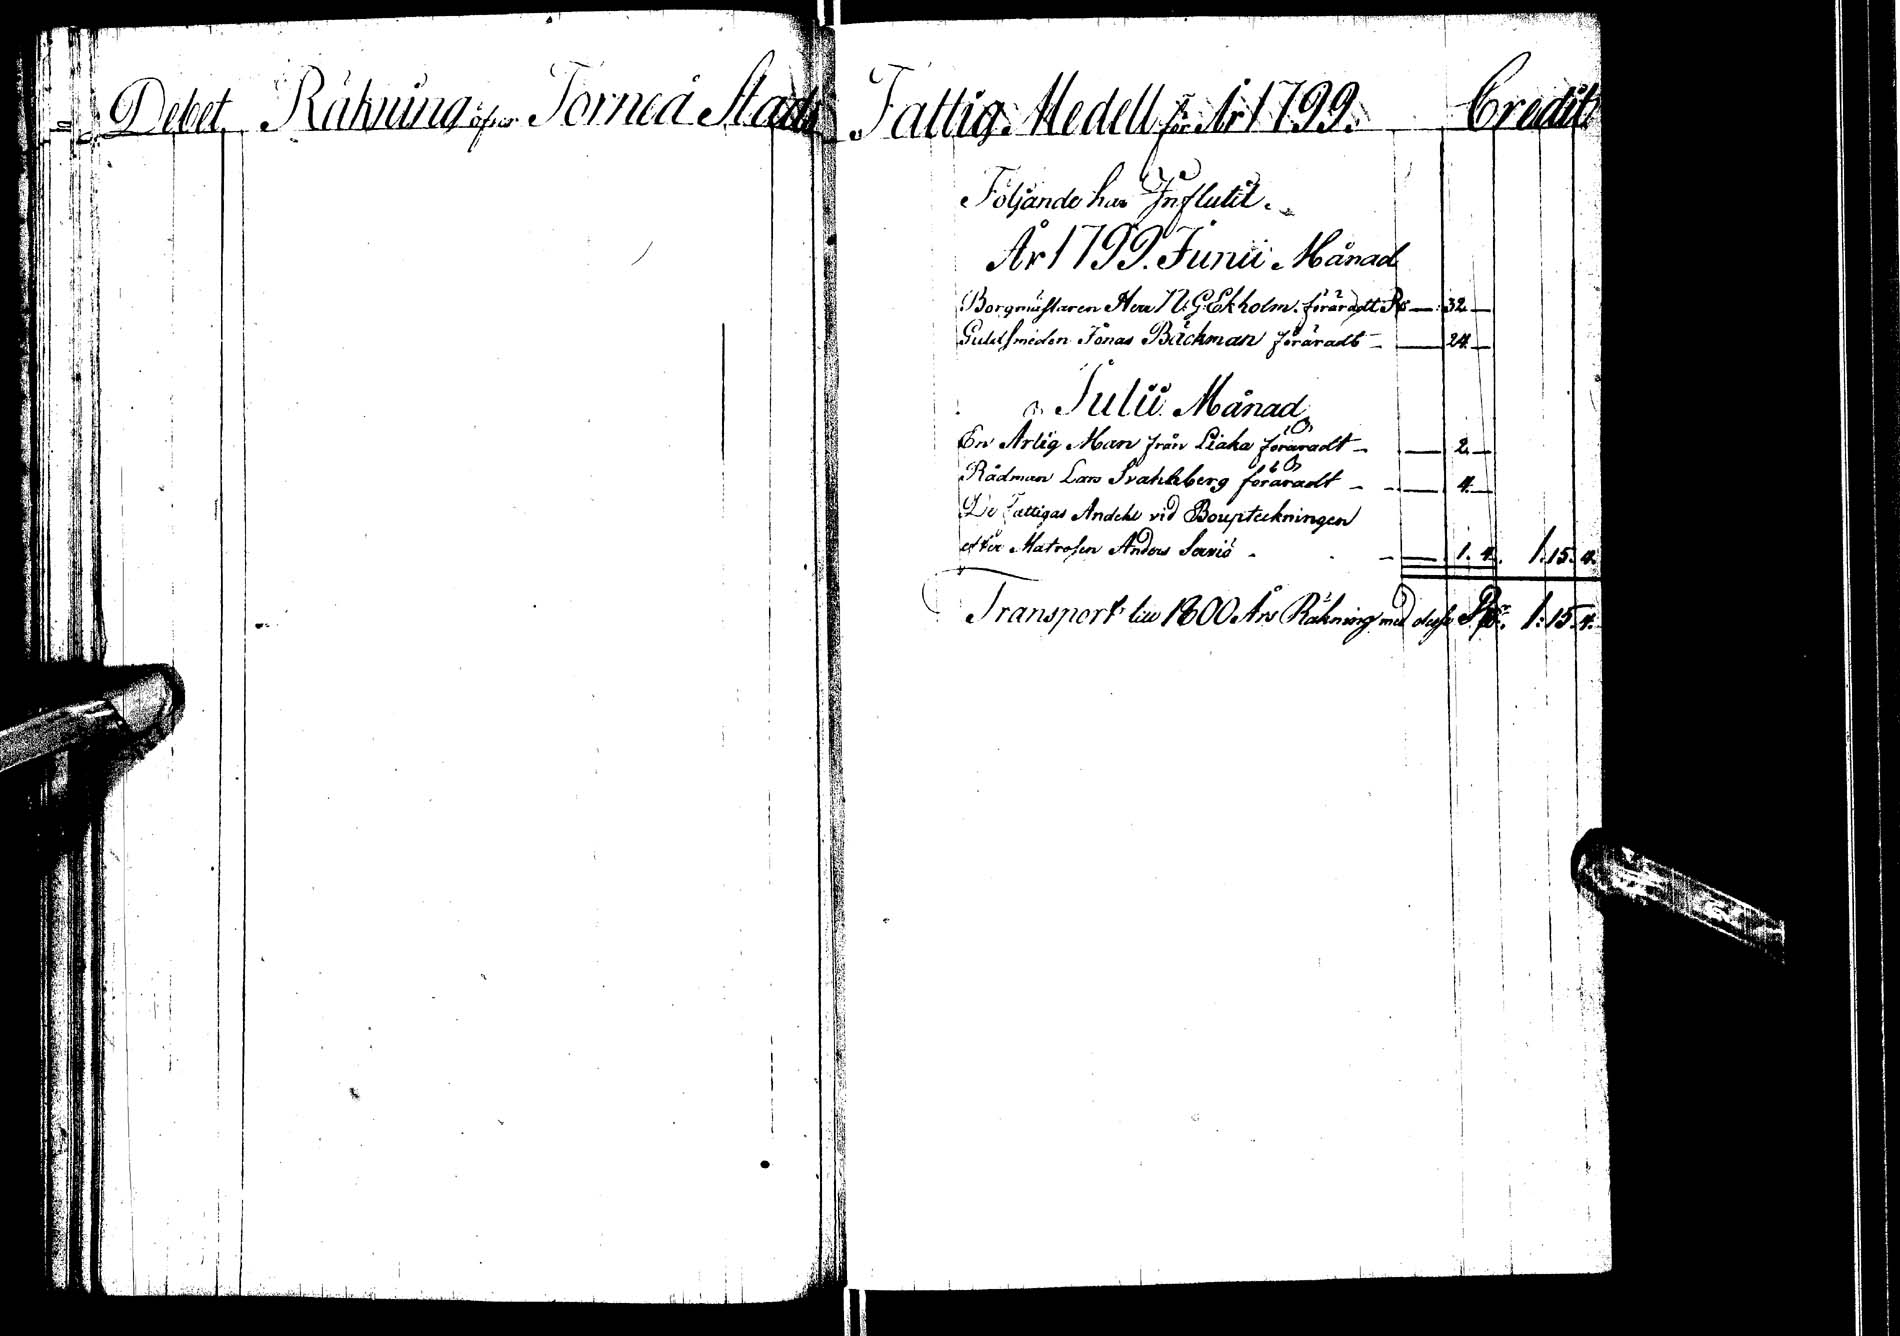 Debet. Räkning öfver Torneå Stads Fattig Medell för År 1799. Credit
Följande har Influtit.
År 1799. Junii Månad
Borgmästaren Herr N: G: Ekholm. föräradt R — : 32 —
Guldsmeden Jonas Bäckman föräradt — — 24. —
Julii Månad
En Ärlig Man från Liaka föräradt — — 2. —
Rådman Lars Svahnberg föräradt — — 4. —
De Fattigas Andehl vid Bouptekningen
efter Matrosen Anders Serviö — — 1. 4. 1. 15. 4.
Transport till 1800 Års Räkning med desse 1: 15. 4.